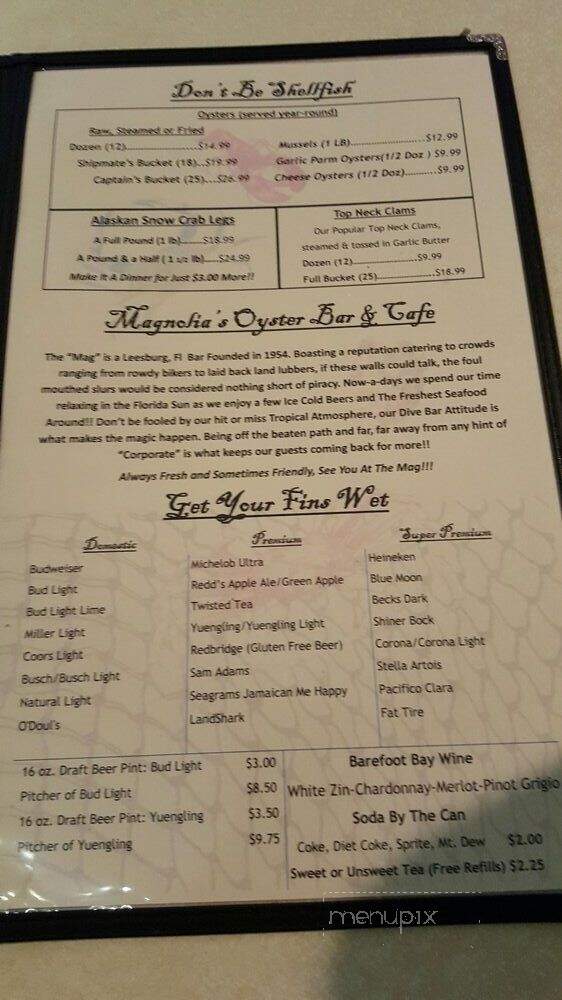 Don't Be Shellfish
Oysters (served year-round)
Raw, Steamed or Fried
Dozen (12)........................$14.99
Shipmate's Bucket (18)...$19.99
Captain's Bucket (25)....$26.99
Mussels (1 LB)..........................$12.99
Garlic Parm Oysters(1/2 Doz ) $9.99
Cheese Oysters (1/2 Doz)..........$9.99
Alaskan Snow Crab Legs
A Full Pound (1 lb).......$18.99
A Pound & a Half ( 1 1/2 lb)....$24.99
Make It A Dinner for Just $3.00 More!!
Top Neck Clams
Our Popular Top Neck Clams,
steamed & tossed in Garlic Butter
Dozen (12)......................$9.99
Full Bucket (25)....................$18.99
Magnolia's Oyster Bar & Cafe
The "Mag" is a Leesburg, Fl Bar Founded in 1954. Boasting a reputation catering to crowds
ranging from rowdy bikers to laid back land lubbers, if these walls could talk, the foul
mouthed slurs would be considered nothing short of piracy. Now-a-days we spend our time
relaxing in the Florida Sun as we enjoy a few Ice Cold Beers and The Freshest Seafood
Around!! Don't be fooled by our hit or miss Tropical Atmosphere, our Dive Bar Attitude is
what makes the magic happen. Being off the beaten path and far, far away from any hint of
"Corporate" is what keeps our guests coming back for more!!
Always Fresh and Sometimes Friendly, See You At The Mag!!!
Get Your Fins Wet
Domestic
Budweiser
Bud Light
Bud Light Lime
Miller Light
Coors Light
Busch/Busch Light
Natural Light
O'Doul's
Premium
Michelob Ultra
Redd's Apple Ale/Green Apple
Twisted Tea
Yuengling/Yuengling Light
Redbridge (Gluten Free Beer)
Sam Adams
Seagrams Jamaican Me Happy
LandShark
Super Premium
Heineken
Blue Moon
Becks Dark
Shiner Bock
Corona/Corona Light
Stella Artois
Pacifico Clara
Fat Tire
16 oz. Draft Beer Pint: Bud Light $3.00
Pitcher of Bud Light $8.50
16 oz. Draft Beer Pint: Yuengling $3.50
Pitcher of Yuengling $9.75
Barefoot Bay Wine
White Zin-Chardonnay-Merlot-Pinot Grigio
Soda By The Can
Coke, Diet Coke, Sprite, Mt. Dew $2.00
Sweet or Unsweet Tea (Free Refills) $2.25
menupix